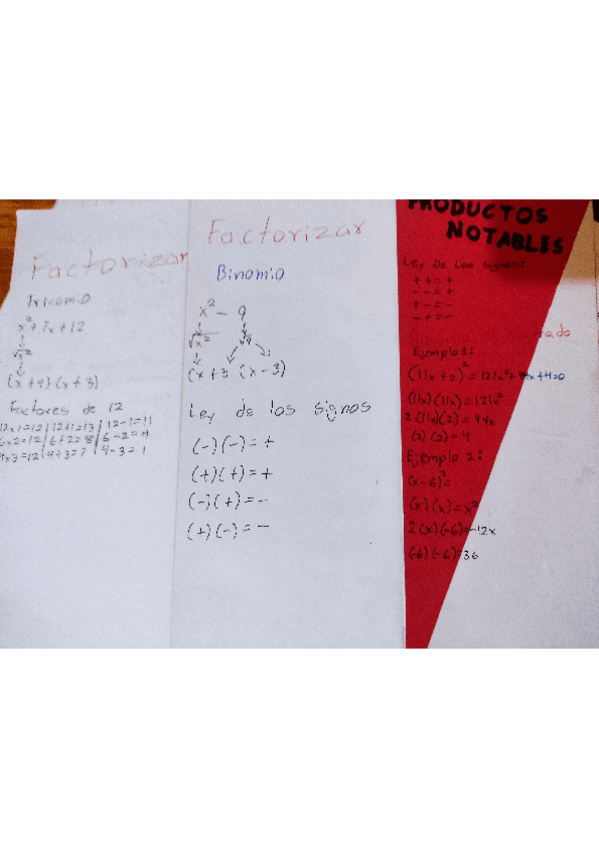 Factorizar
Trinomio
x² + 7x + 12
√x²
(x + 4) (x + 3)
Factores de 12
12x1=12 | 12+1=13 | 12-1=11
6x2=12 | 6+2=8 | 6-2=4
4x3=12 | 4+3=7 | 4-3=1
Factorizar
Binomio
x² - 9
√x²
(x + 3 (x - 3)
Ley de los signos
(-)(-)= +
(+)(+)= +
(-)(+)= -
(+)(-)= -
PRODUCTOS
NOTABLES
Ley De Los Signos
+ + = +
- - = +
+ - = -
- + = -
Ejemplo 1:
(11x + 2)² = 121x² + 44x + 4=0
(11x)(11x) = 121x²
2(11x)(2) = 44x
(2)(2) = 4
Ejemplo 2:
(x-6)²=
(x)(x)= x²
2(x)(-6)= -12x
(-6)(-6)=36